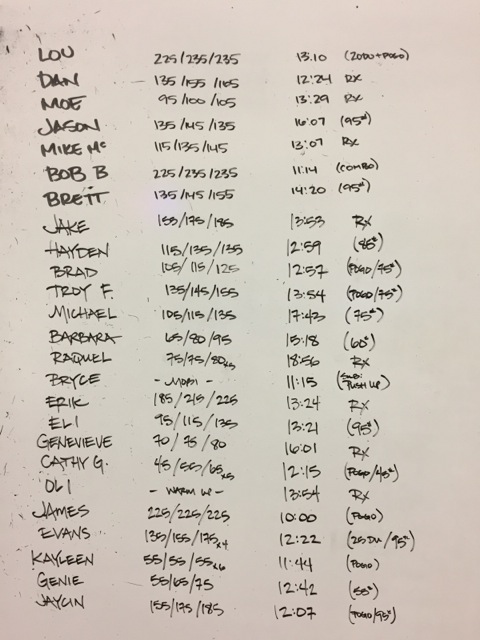 LOU 225/235/235 13:10 (20DU+POGO)
DAN 135/155/165 12:24 RX
MOE 95/100/105 13:29 RX
JASON 135/145/135 16:07 (95#)
MIKE Mc 115/135/145 13:07 RX
BOB B 225/235/235 11:14 (COMBO)
BRETT 135/145/155 14:20 (95#)
JAKE 155/175/185 13:53 RX
HAYDEN 115/135/135 12:59 (85#)
BRAD 105/115/125 12:57 (POGO/75#)
TROY F. 135/145/155 13:54 (POGO/75#)
MICHAEL 105/115/135 17:43 (75#)
BARBARA 65/80/95 15:18 (60#)
RAQUEL 75/75/80x5 18:56 RX
BRYCE - MOBI - 11:15 (SUB: PUSH UP)
ERIK 185/215/225 13:24 RX
ELI 95/115/135 13:21 (95#)
GENEVIEVE 70/75/80 16:01 RX
CATHY G. 45/55/65x5 12:15 (POGO/45#)
OLI - WARM UP - 13:54 RX
JAMES 225/225/225 10:00 (POGO)
EVANS 135/155/175x4 12:22 (25DU/95#)
KAYLEEN 55/55/55x6 11:44 (POGO)
GENIE 55/65/75 12:42 (55#)
JAYLIN 155/175/185 12:07 (POGO/95#)